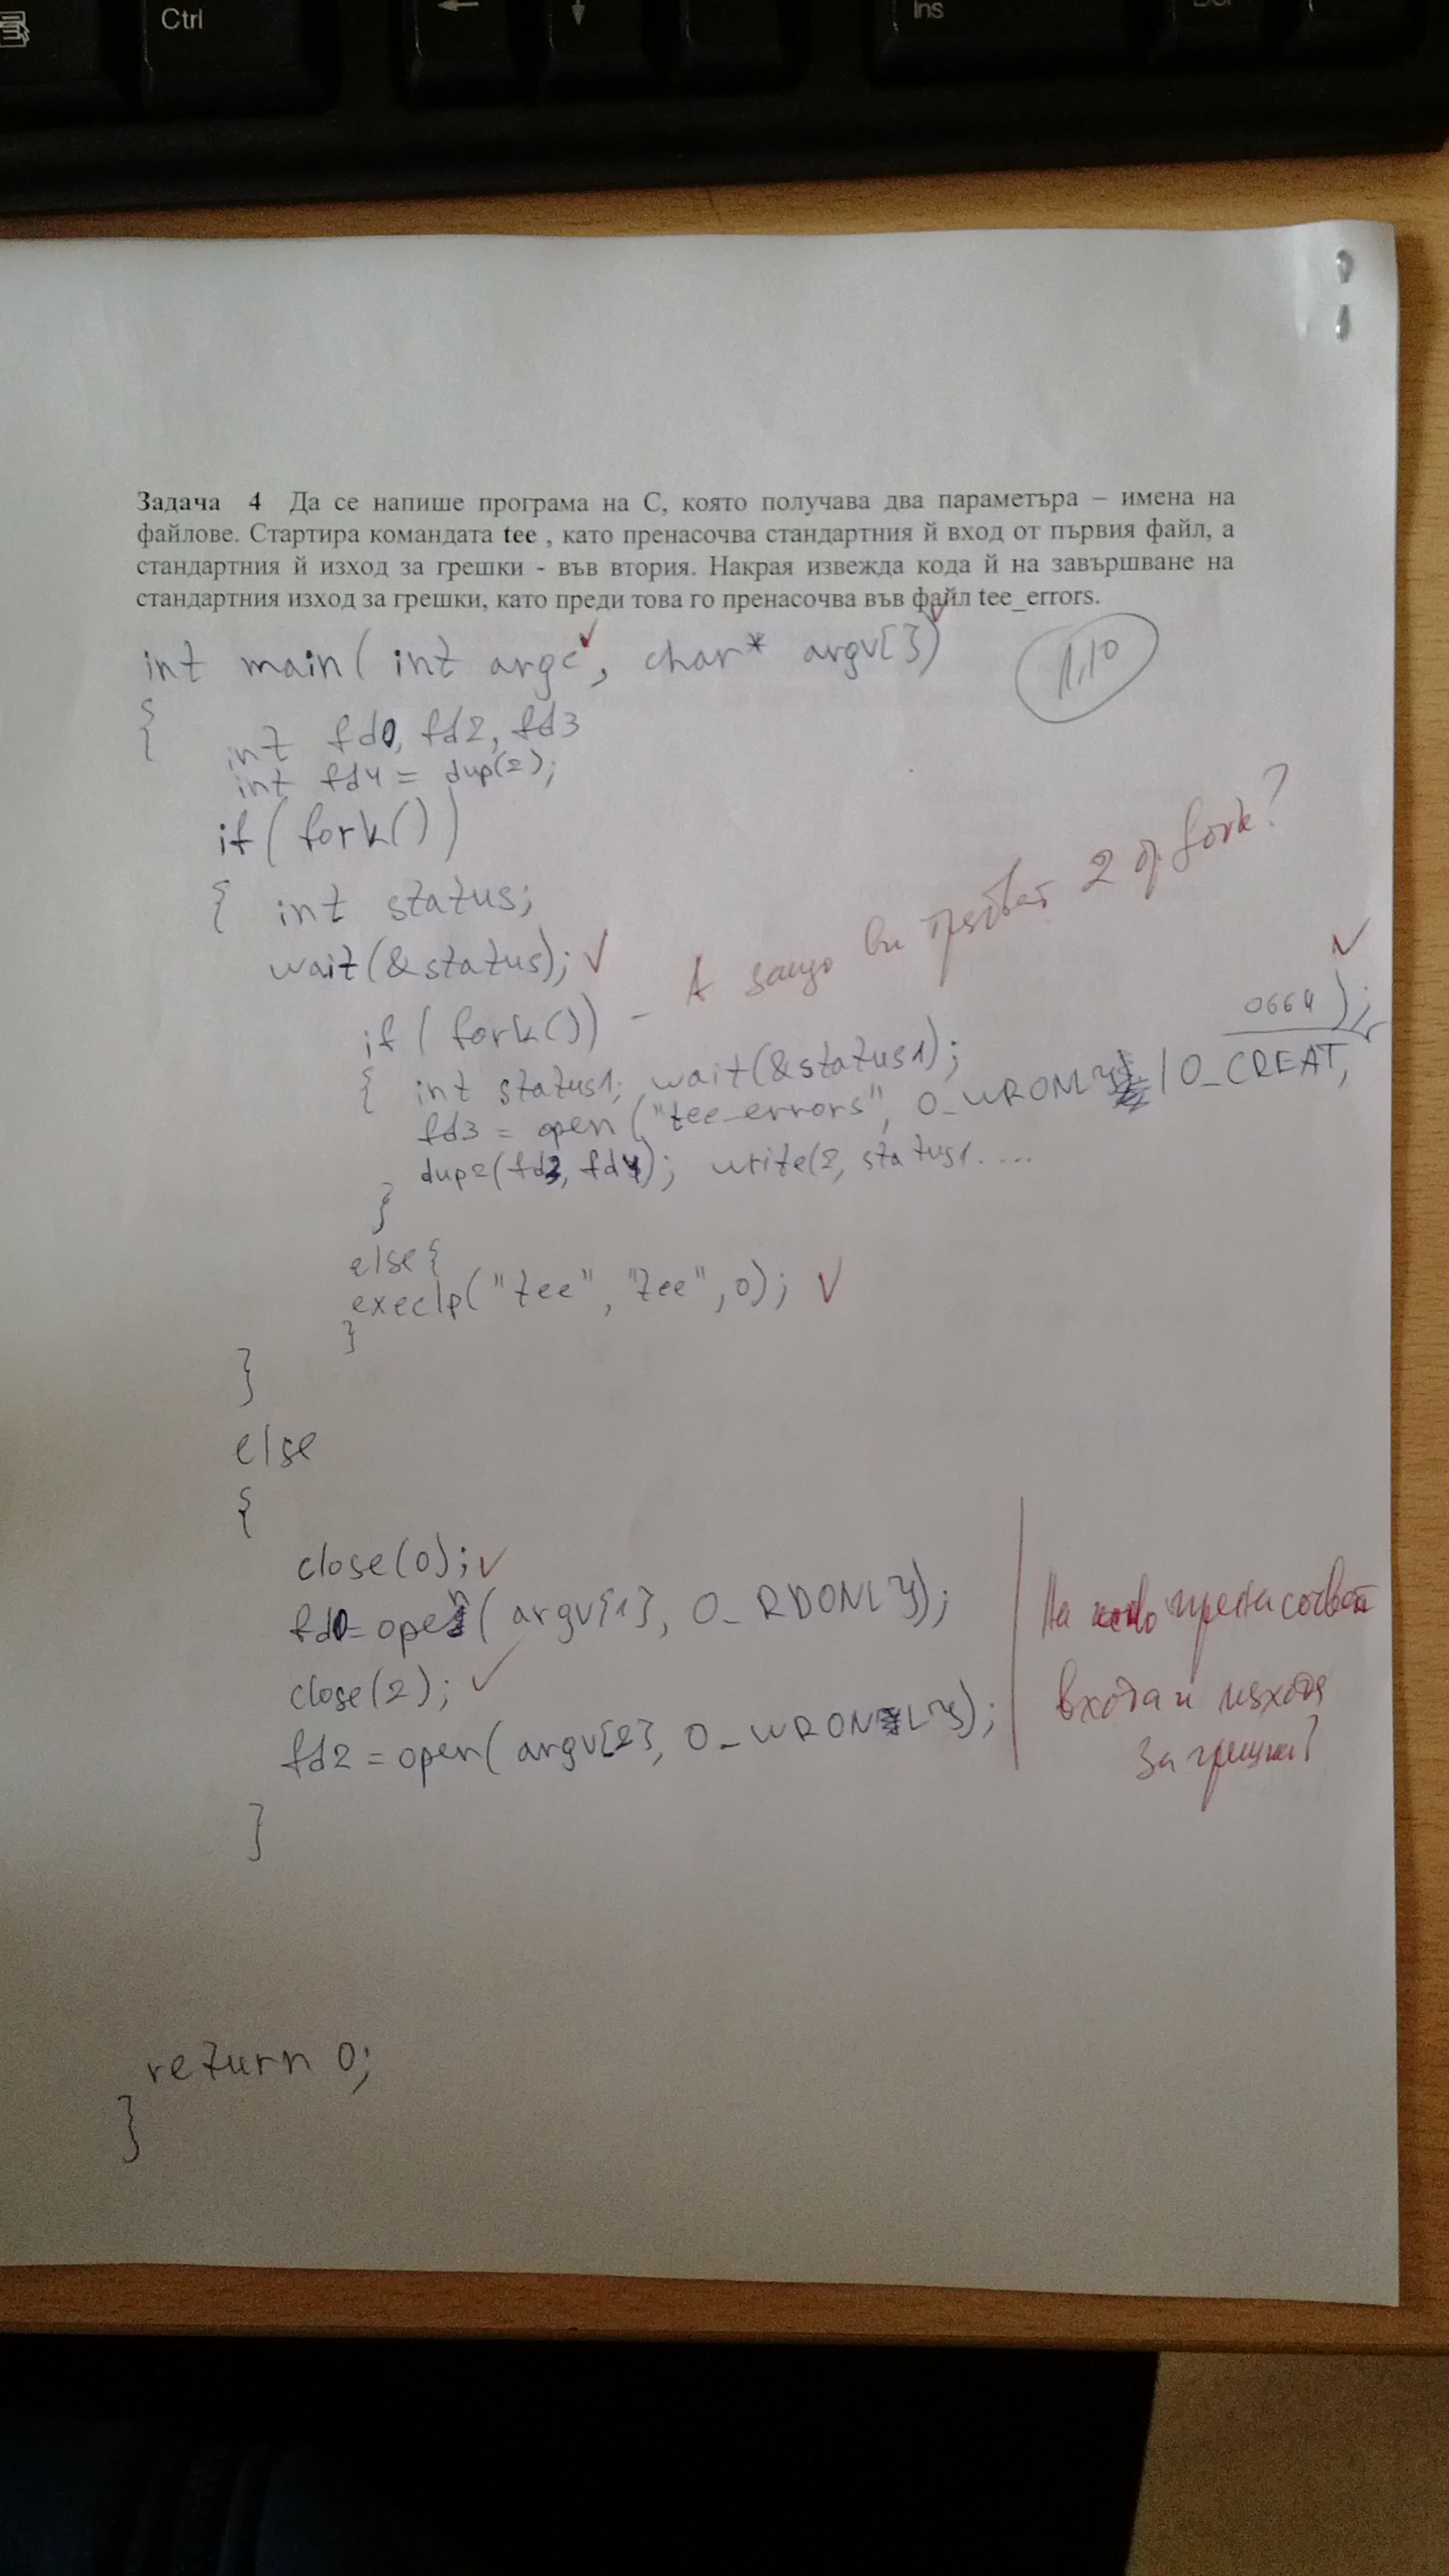 Ctrl
Ins
Задача 4 Да се напише програма на С, която получава два параметъра – имена на
файлове. Стартира командата tee , като пренасочва стандартния й вход от първия файл, а
стандартния й изход за грешки - във втория. Накрая извежда кода й на завършване на
стандартния изход за грешки, като преди това го пренасочва във файл tee_errors.
int main( int argc, char* argv[])
1,10
{
int fd0, fd2, fd3
int fd4 = dup(2);
if( fork())
{ int status;
wait(&status);
if( fork()) – А защо ви трябват 2 бр. fork?
{ int status1; wait(&status1);
fd3 = open("tee_errors", O_WRONLY | O_CREAT, 0664);
dup2(fd3, fd4); write(2, status1....
}
else{
execlp("tee", "tee", 0);
}
}
else
{
close(0);
fd0=open( argv[1], O_RDONLY);
close(2);
fd2 = open( argv[2], O_WRONLY);
На кого пренасочват
входа и изхода
за грешки?
}
return 0;
}